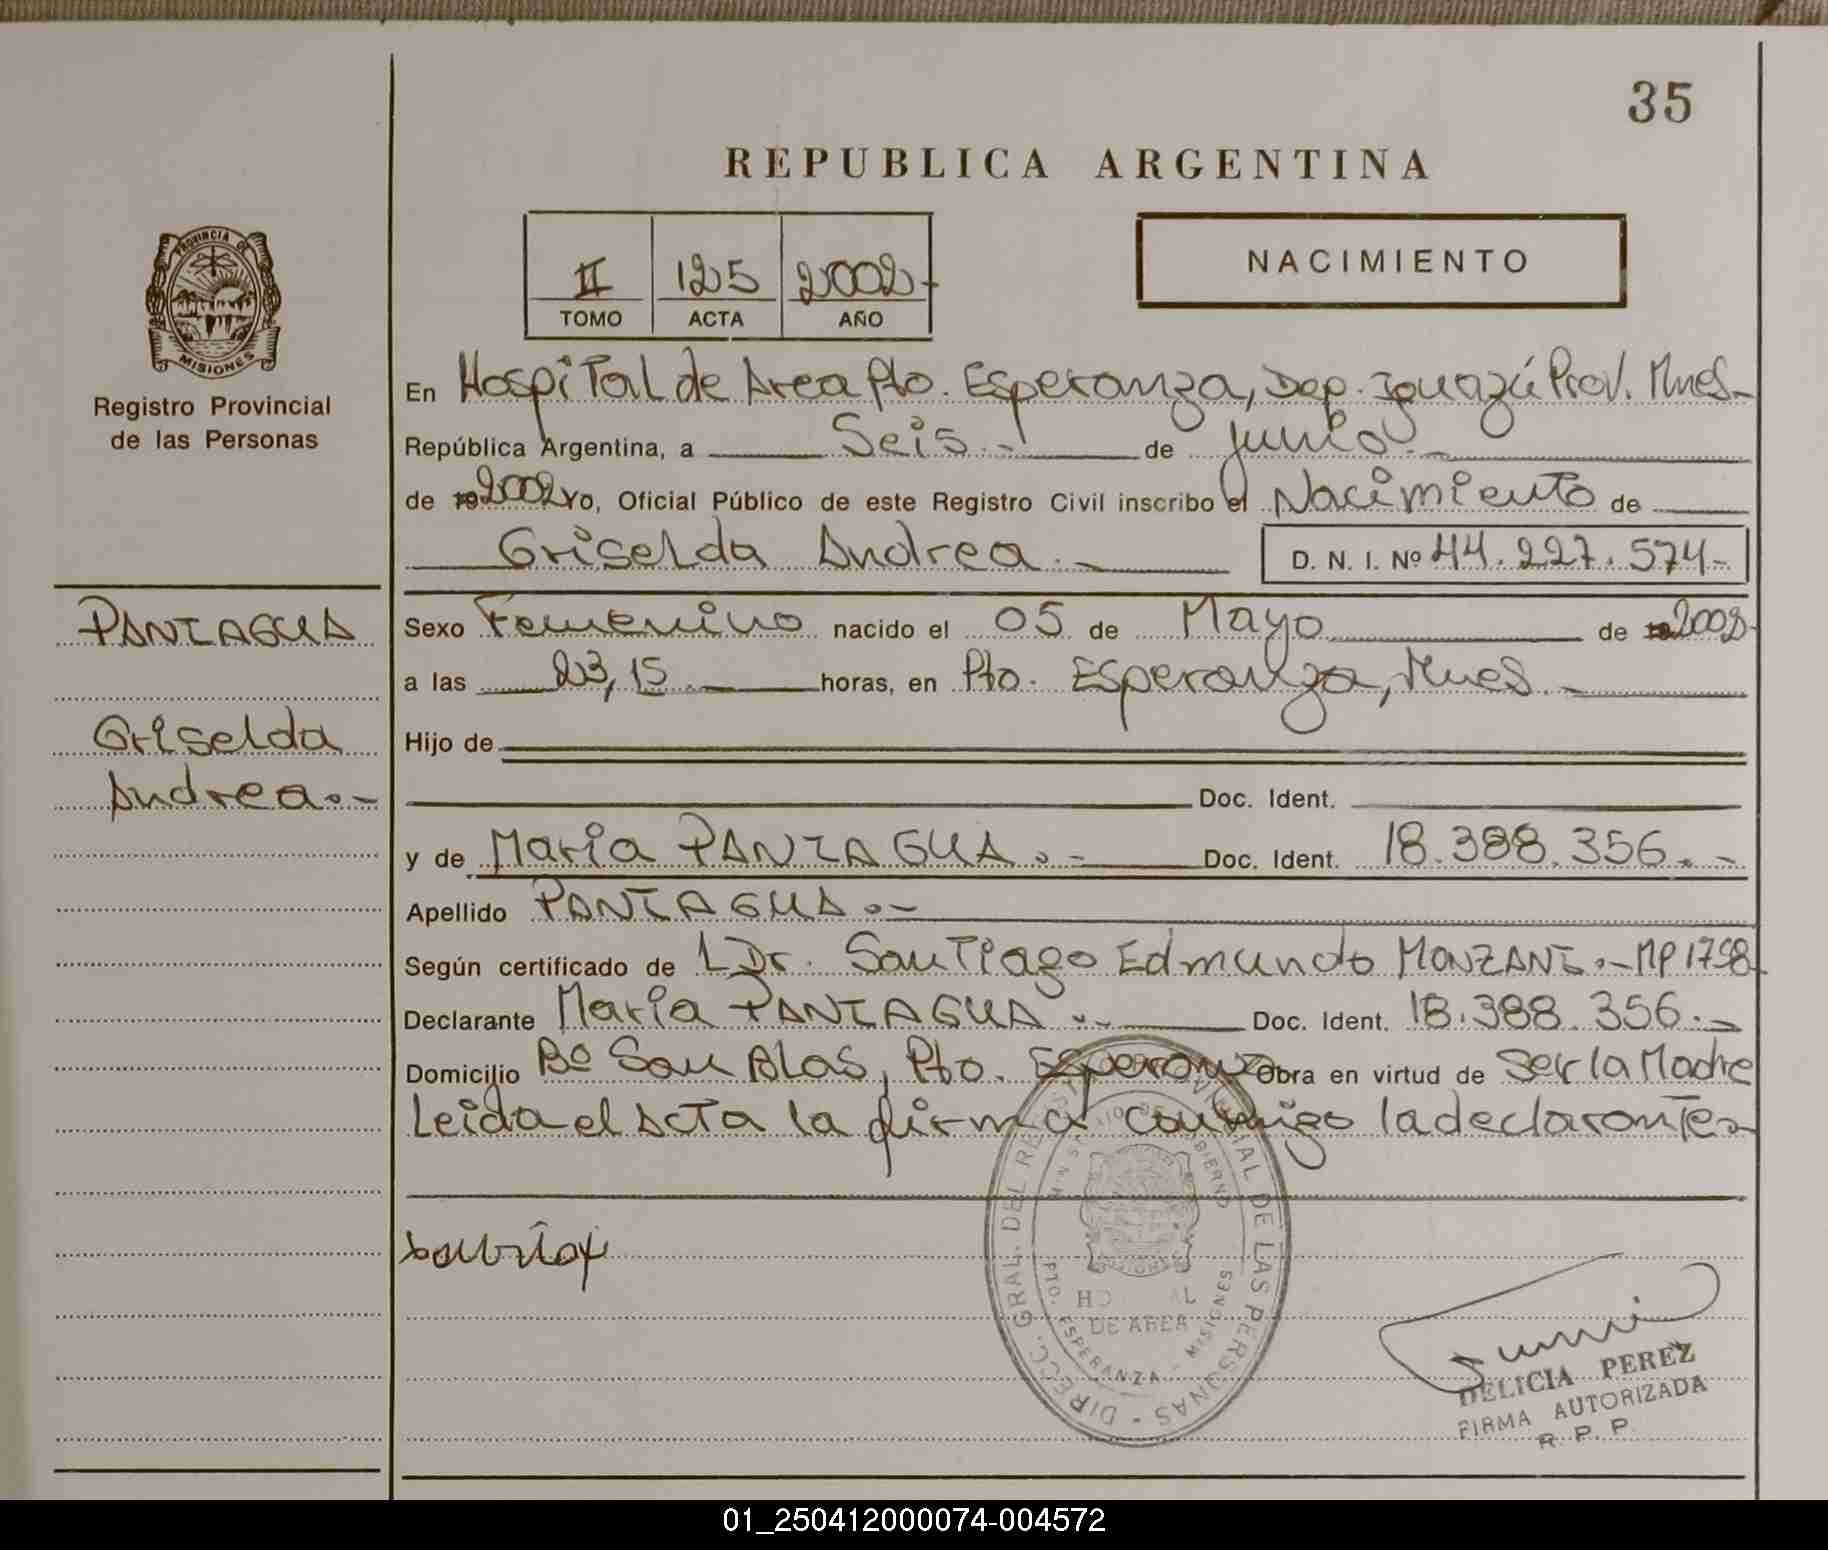 35
REPUBLICA ARGENTINA
II 125 2002-
TOMO ACTA AÑO
NACIMIENTO
PROVINCIA DE
MISIONES
Registro Provincial
de las Personas
En Hospital de Area Pto. Esperanza, Dep. Iguazú Prov. Mnes-
República Argentina, a Seis.- de junio.-
de 2002 yo, Oficial Público de este Registro Civil inscribo el Nacimiento de
Griselda Andrea.- D. N. I. Nº 44.227.574-
PANIAGUA
Griselda
Andrea.-
Sexo Femenino nacido el 05 de Mayo de 2002-
a las 23,15.- horas, en Pto. Esperanza, Mnes.-
Hijo de
Doc. Ident.
y de María PANIAGUA.- Doc. Ident. 18.388.356.-
Apellido PANIAGUA.-
Según certificado de Dr. Santiago Edmundo MONZANI.- MP 1758
Declarante María PANIAGUA.- Doc. Ident. 18.388.356.-
Domicilio Bº San Blas, Pto. Esperanza Obra en virtud de Ser la Madre
Leida el Acta la firma conmigo la declarante.-
DIRECC. GRAL. DEL REGISTRO PROVINCIAL DE LAS PERSONAS -
MINISTERIO DE GOBIERNO
HO AL
DE AREA
PTO. ESPERANZA - MISIONES
DELICIA PEREZ
FIRMA AUTORIZADA
R. P. P.
01_250412000074-004572